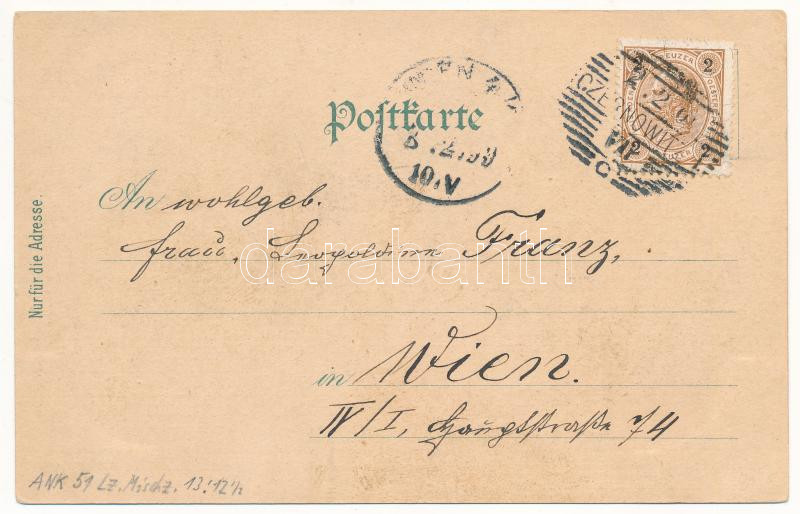 Postkarte
Nur für die Adresse.
An wohlgeb.
Frau, Leopoldine Franz,
in Wien.
IV/I, Hauptstraße 74
ANK 51 Lz. Mischz. 13:12½
2 KREUZER 2
CZERNOWITZ
WIEN 4/1
10.V
darabanth